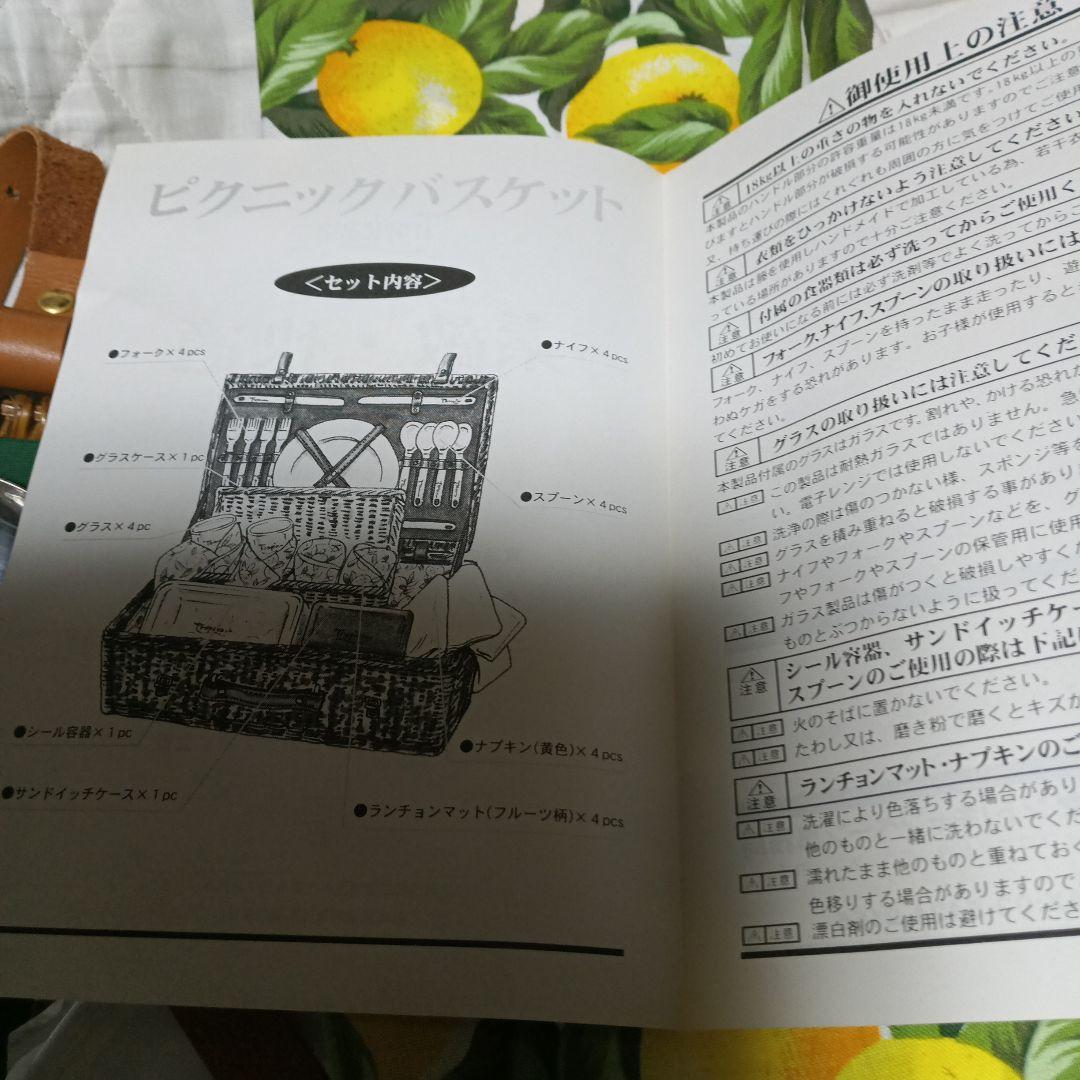 ピクニックバスケット
<セット内容>
●フォーク×4pcs
●ナイフ×4pcs
●グラスケース×1pc
●スプーン×4pcs
●グラス×4pc
●シール容器×1pc
●ナプキン(黄色)×4pcs
●サンドイッチケース×1pc
●ランチョンマット(フルーツ柄)×4pcs
⚠御使用上の注意
注意 18kg以上の重さの物を入れないでください。
本製品のハンドル部分の許容重量は18kg未満です。18kg以上の
びますとハンドル部分が破損する可能性がありますのでご注意
又、持ち運びの際にはくれぐれも周囲の方に気をつけてご使用
注意 衣類をひっかけないよう注意してください
本製品は籐を使用しハンドメイドで加工している為、若干衣
っている場所がありますので十分ご注意ください。
注意 付属の食器類は必ず洗ってからご使用く
初めてお使いになる前には必ず洗剤等でよく洗ってからご
注意 フォーク、ナイフ、スプーンの取り扱いには
フォーク、ナイフ、スプーンを持ったまま走ったり、遊
わぬケガをする恐れがあります。お子様が使用すると
てください。
注意 グラスの取り扱いには注意してくだ
本製品付属のグラスはガラスです。割れや、かける恐れ
注意 この製品は耐熱ガラスではありません。急
い。電子レンジでは使用しないでください
注意 洗浄の際は傷のつかない様、スポンジ等
注意 グラスを積み重ねると破損する事があり
注意 ナイフやフォークやスプーンなどを、グ
フやフォークやスプーンの保管用に使用
注意 ガラス製品は傷がつくと破損しやすく
ものとぶつからないように扱ってくだ
注意 シール容器、サンドイッチケー
スプーンのご使用の際は下記
注意 火のそばに置かないでください。
注意 たわし又は、磨き粉で磨くとキズが
注意 ランチョンマット・ナプキンのご
注意 洗濯により色落ちする場合があり
他のものと一緒に洗わないでくだ
注意 濡れたまま他のものと重ねておく
色移りする場合がありますので
注意 漂白剤のご使用は避けてくださ